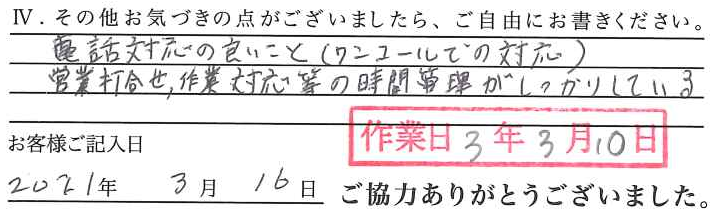 Ⅳ．その他お気づきの点がございましたら、ご自由にお書きください。
電話対応の良いこと(ワンコールでの対応)
営業打合せ,作業対応等の時間管理がしっかりしている
作業日3年3月10日
お客様ご記入日
2021年 3月 16日 ご協力ありがとうございました。